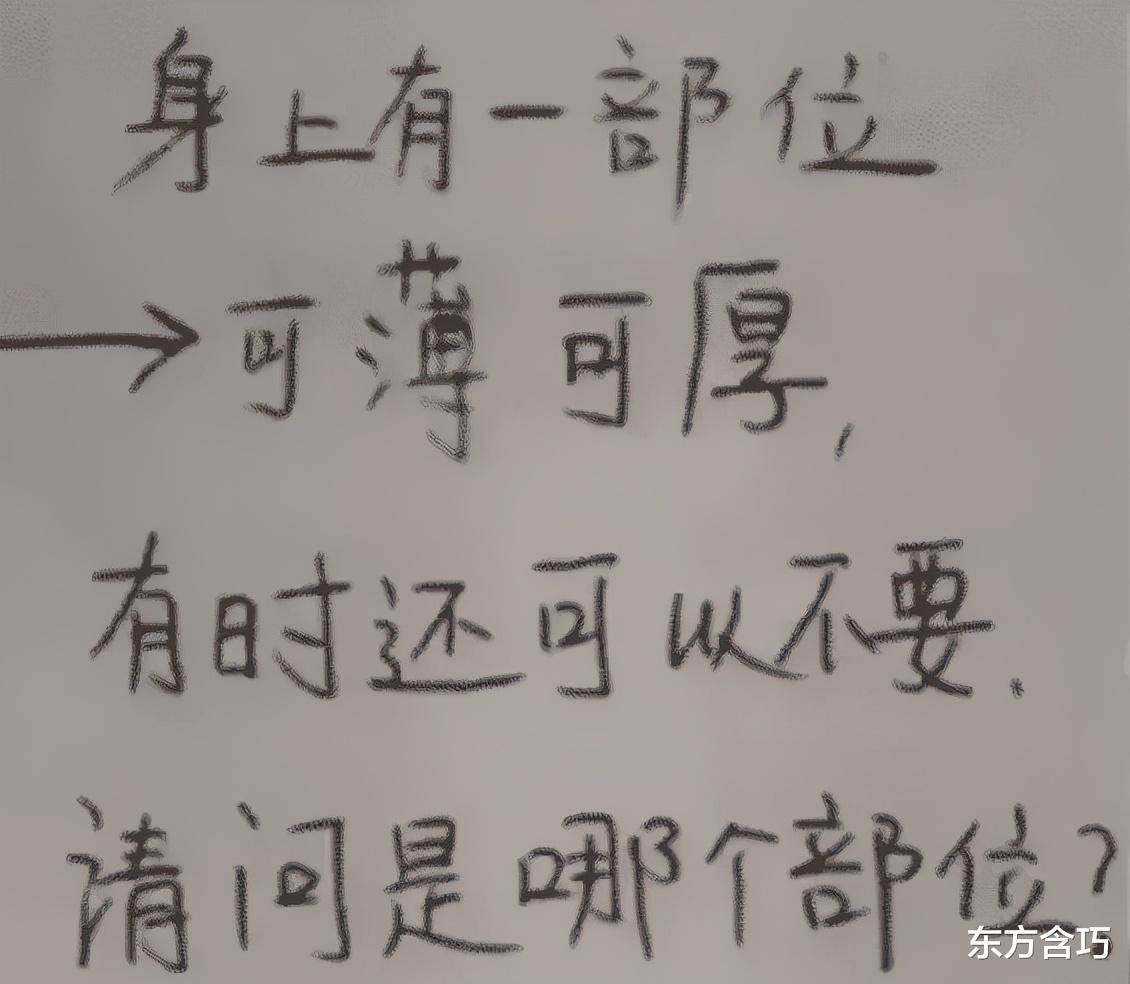 身上有一部位
→可薄可厚,
有时还可以不要.
请问是哪个部位?
东方含巧